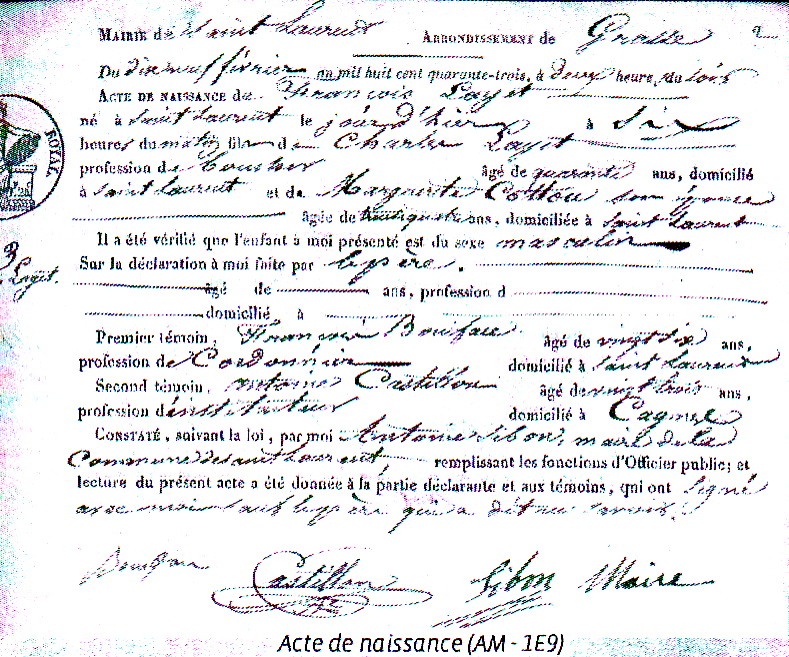 Mairie de Saint Laurent Arrondissement de Grasse
Du dix neuf février an mil huit cent quarante-trois, à deux heure, du soir
Acte de naissance de François Layet
né à Saint Laurent le jour d'hier à Six
heures du matin fils de Charles Layet
profession de âgé de quarante ans, domicilié
à Saint Laurent et de Marguerite Cottou son épouse
âgée de ans, domiciliée à Saint Laurent
Il a été vérifié que l'enfant à moi présenté est du sexe masculin
Sur la déclaration à moi faite par le père.
âgé de ans, profession d
domicilié à
Premier témoin, François Boniface âgé de vingt six ans,
profession de Cordonnier domicilié à Saint Laurent
Second témoin, Antoine Castillon âgé de vingt trois ans,
profession d'instituteur domicilié à Cagnes
Constaté, suivant la loi, par moi Antoine Sibon, maire de la
Commune de Saint Laurent, remplissant les fonctions d'Officier public; et
lecture du présent acte a été donnée à la partie déclarante et aux témoins, qui ont signé
avec moi sauf le père qui a dit ne savoir.
Boniface Castillon Sibon Maire
ROYAL
3
Layet.
2
Acte de naissance (AM - 1E9)